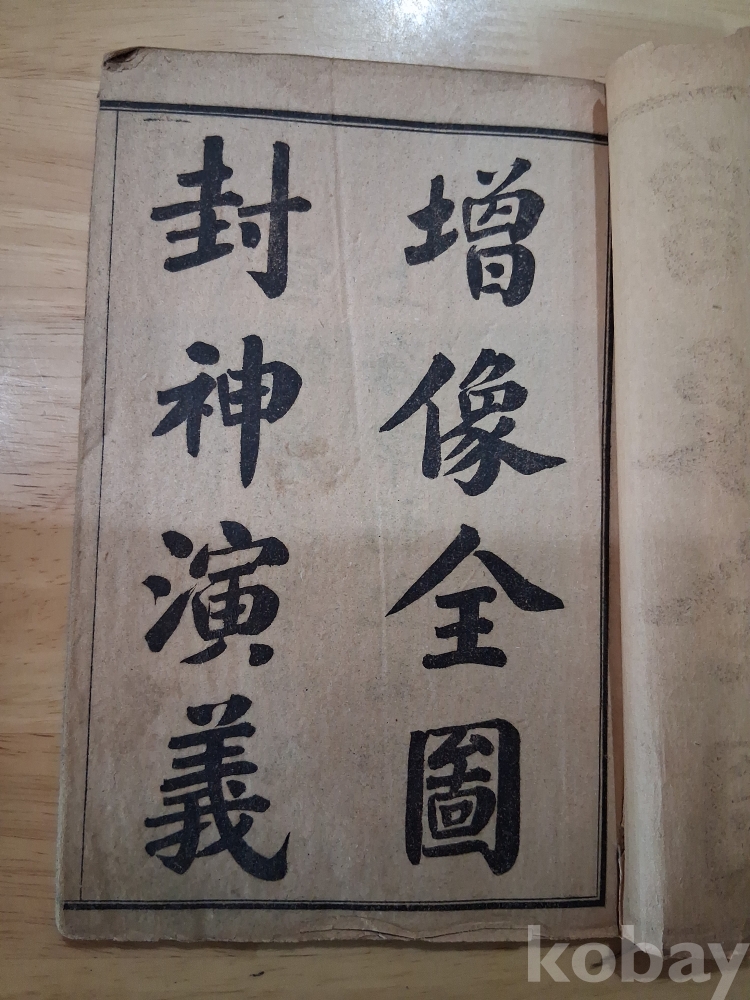 增像全圖
封神演義
kobay